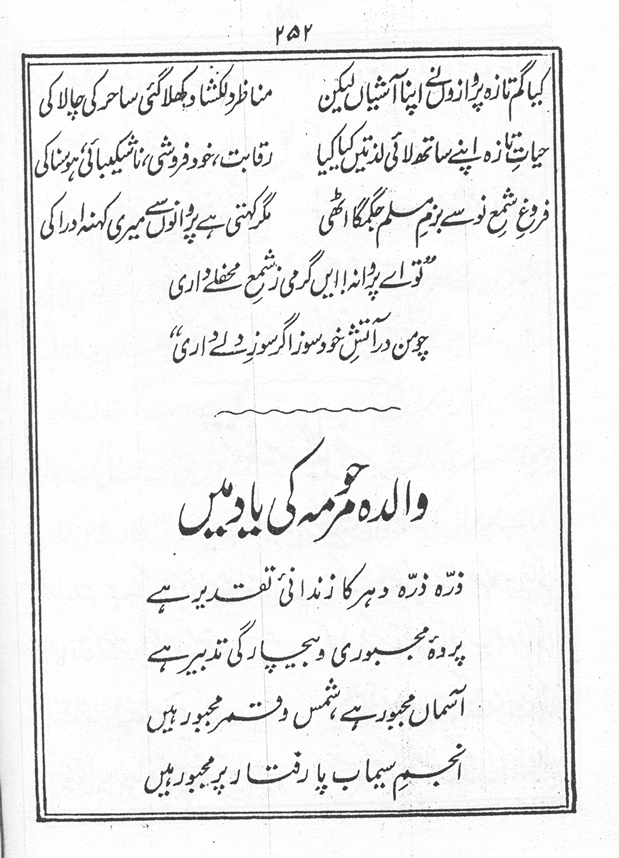 ۲۵۲
کیا گم تازہ پروازوں نے اپنا آشیاں لیکن مناظر دلکشا دکھلا گئی ساحر کی چالاکی
حیاتِ تازہ اپنے ساتھ لائی لذتیں کیا کیا رقابت، خود فروشی، ناشکیبائی، ہوسناکی
فروغِ شمعِ نو سے بزمِ مسلم جگمگا اٹھی مگر کہتی ہے پروانوں سے میری کہنہ ادراکی
”تو اے پروانہ! ایں گرمی ز شمعِ محفلے داری
چو من در آتشِ خود سوز اگر سوزِ دلے داری“
والدہ مرحومہ کی یاد میں
ذرّہ ذرّہ دہر کا زندانیٔ تقدیر ہے
پردۂ مجبوری و بیچارگی تدبیر ہے
آسماں مجبور ہے، شمس و قمر مجبور ہیں
انجمِ سیماب پا رفتار پر مجبور ہیں